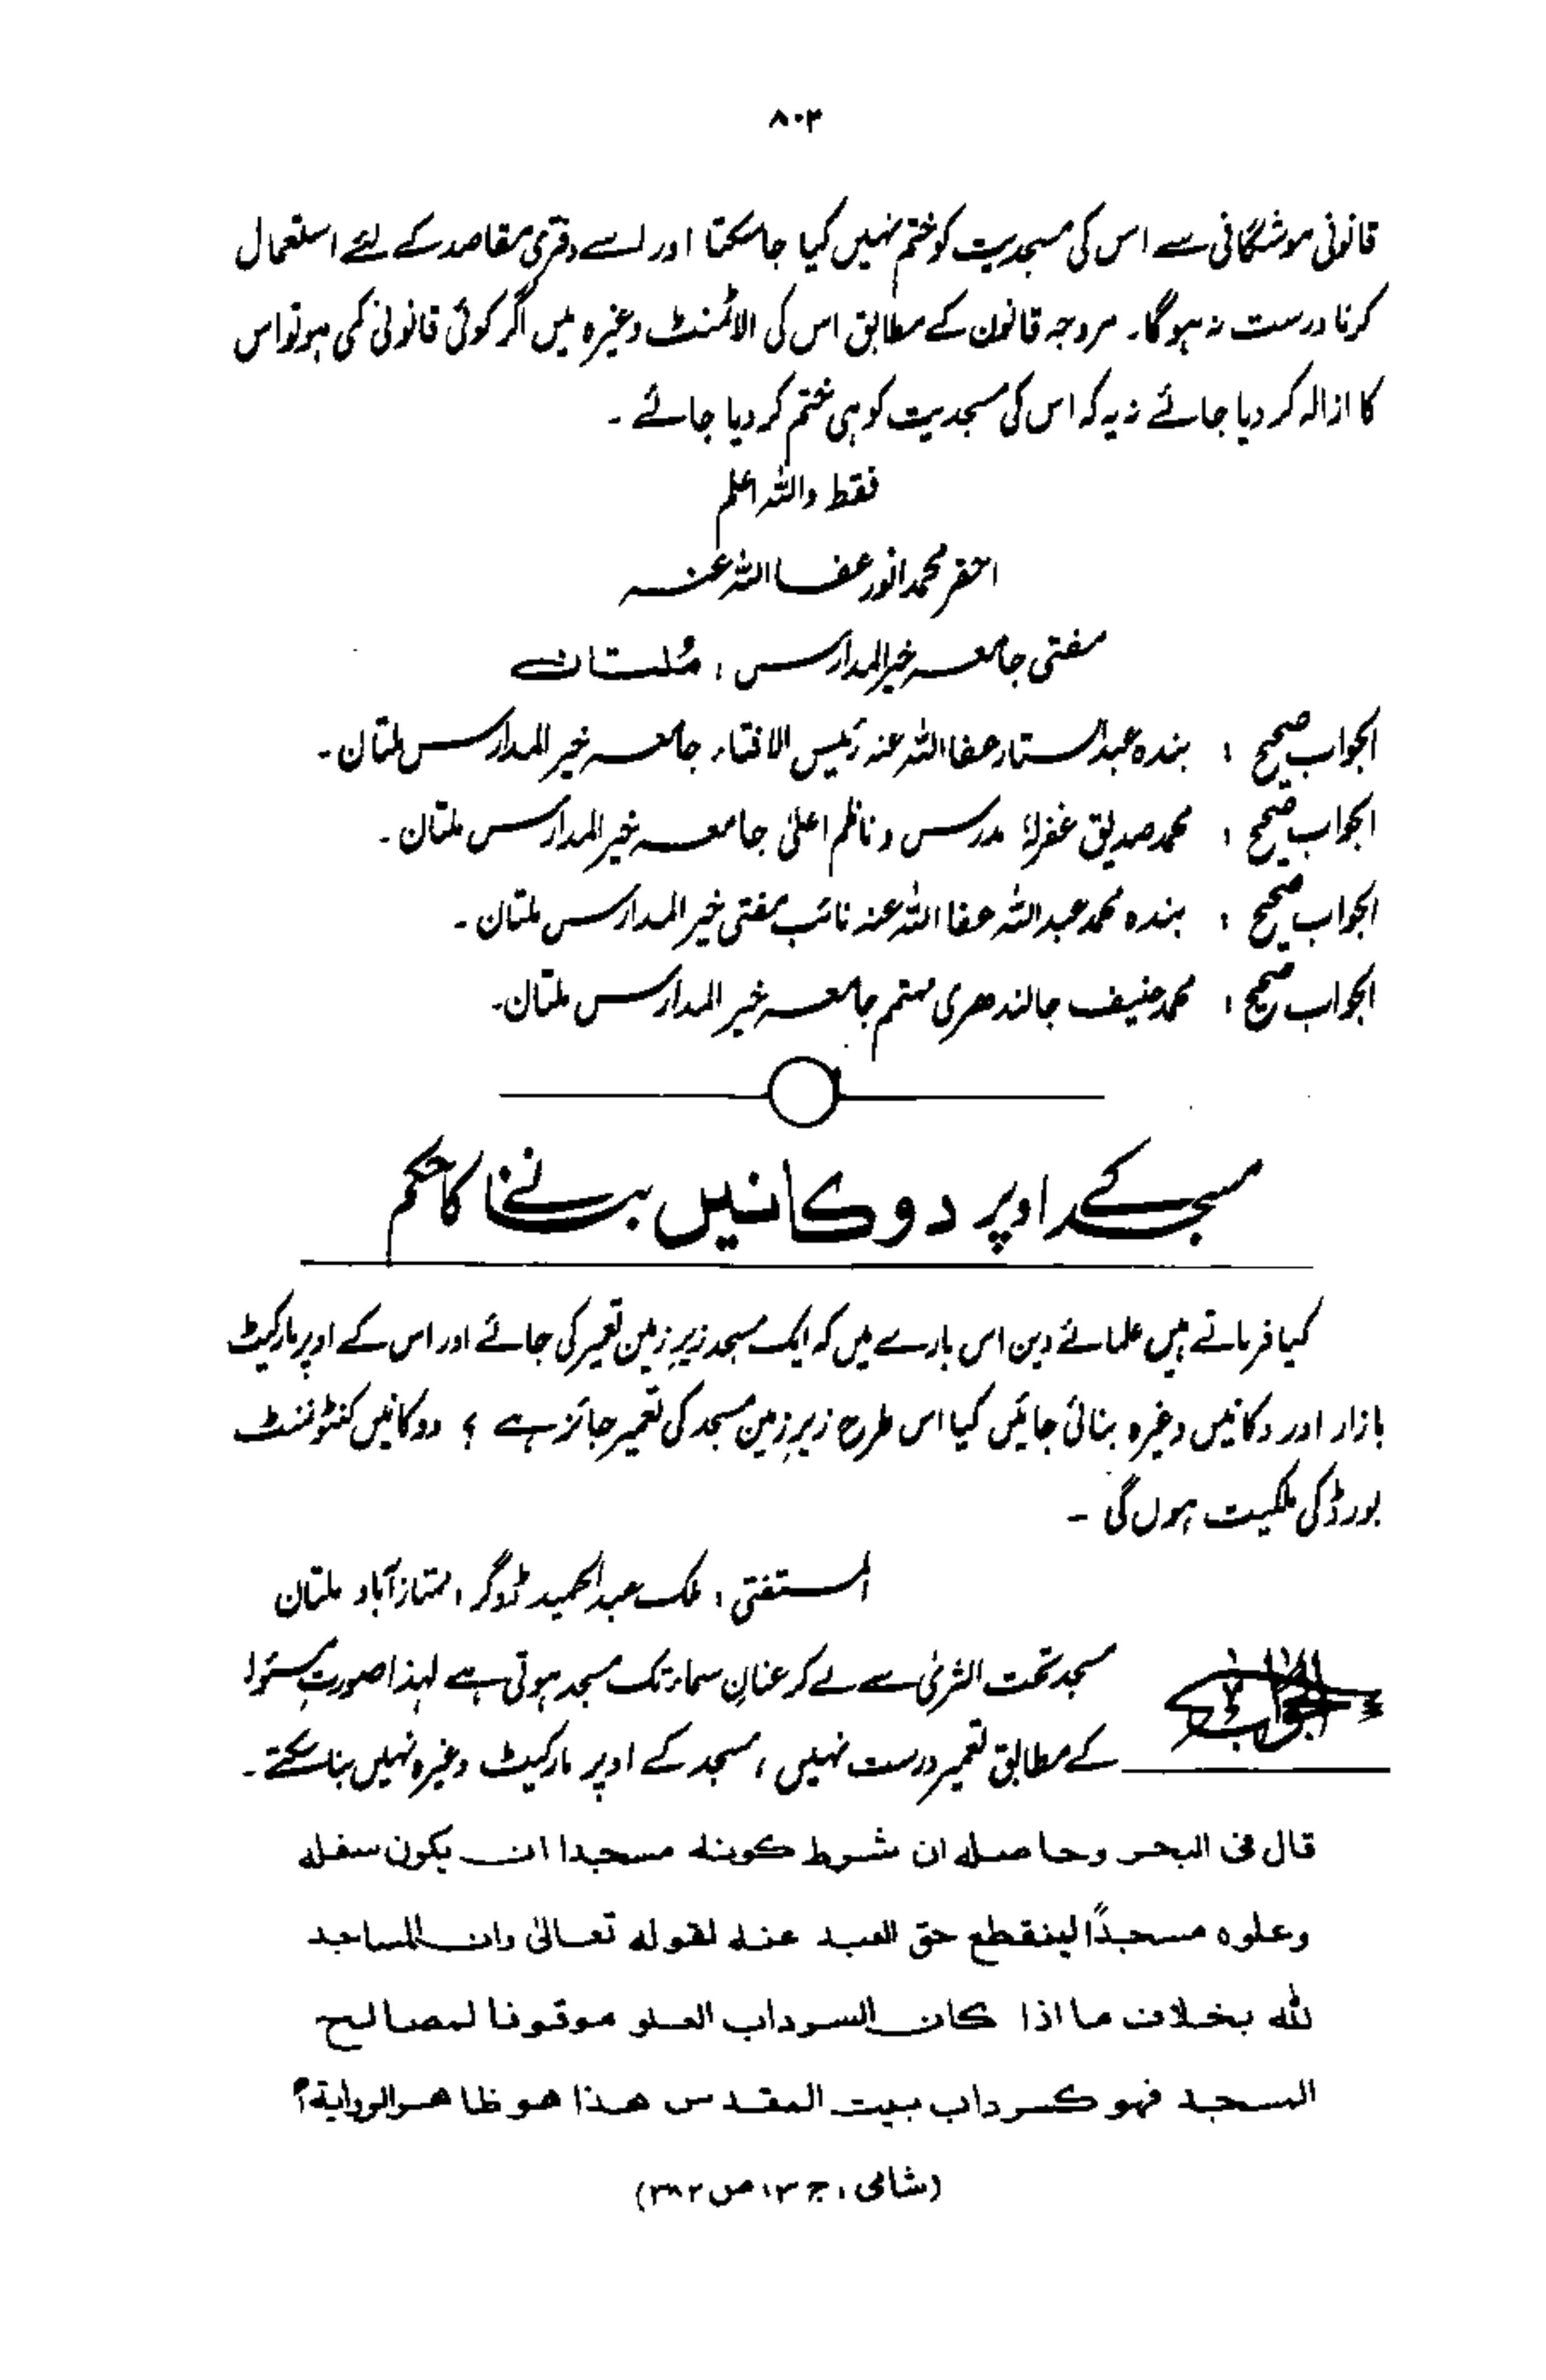 ۸۰۳
قانونی موشگافی سے اس کی مسجدیت کو ختم نہیں کیا جاسکتا اور اسے دفتری مقاصد کے لئے استعمال
کرنا درست نہ ہوگا۔ مروجہ قانون کے مطابق اس کی الاٹمنٹ وغیرہ میں اگر کوئی قانونی کمی ہو تو اس
کا ازالہ کر دیا جائے نہ یہ کہ اس کی مسجدیت کو ہی ختم کر دیا جائے ۔
فقط واللہ اعلم
احقر محمد انور عفا اللہ عنہ
مفتی جامعہ خیر المدارس ، مُلتان
الجواب صحیح : بندہ عبدالستار عفا اللہ عنہ رئیس الافتاء جامعہ خیر المدارس ملتان۔
الجواب صحیح : محمد صدیق غفرلہٗ مدرس و ناظم اعلیٰ جامعہ خیر المدارس ملتان ۔
الجواب صحیح : بندہ محمد عبداللہ عفا اللہ عنہ نائب مفتی خیر المدارس ملتان ۔
الجواب صحیح : محمد حنیف جالندھری مہتمم جامعہ خیر المدارس ملتان۔
مسجد کے اوپر دوکانیں بنانے کا حکم
کیا فرماتے ہیں علمائے دین اس بارے میں کہ ایک مسجد زیرِ زمین تعمیر کی جائے اور اس کے اوپر مارکیٹ
بازار اور دکانیں وغیرہ بنائی جائیں کیا اس طرح زیرِ زمین مسجد کی تعمیر جائز ہے ؟ دوکانیں کنٹونمنٹ
بورڈ کی ملکیت ہوں گی ۔
المستفتی : ملک عبدالحمید ڈوگر ، ممتاز آباد ملتان
الجواب مسجد تحت الثریٰ سے لے کر عنانِ سماء تک مسجد ہوتی ہے لہذا صورتِ سئولہ
کے مطابق تعمیر درست نہیں ، مسجد کے اوپر مارکیٹ وغیرہ نہیں بنا سکتے ۔
قال فی البحر وحاصله ان شرط كونه مسجدا ان يكون سفله
وعلوه مسجدًا لينقطع حق العبد عنه لقوله تعالیٰ وان المساجد
لله بخلاف ما اذا كان السرداب العلو موقوفا لمصالح
المسجد فهو كسرداب بيت المقدس هذا هو ظاهر الرواية؟
(شامی ، ج ۳، ص ۳۸۲)